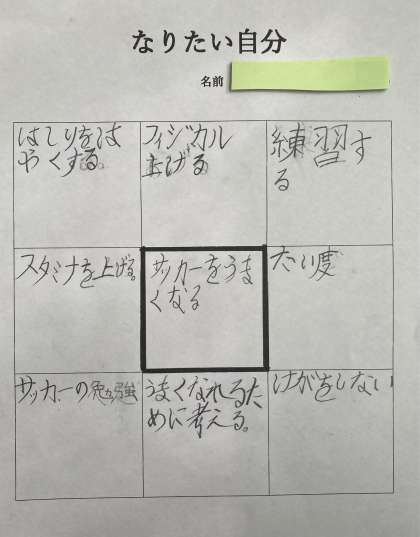 なりたい自分
名前
はしりをは
やくする。
フィジカル
上げる
練習す
る
スタミナを上げる。
サッカーをうま
くなる
たい度
サッカーの勉強
うまくなれるた
めに考える。
けがをしない